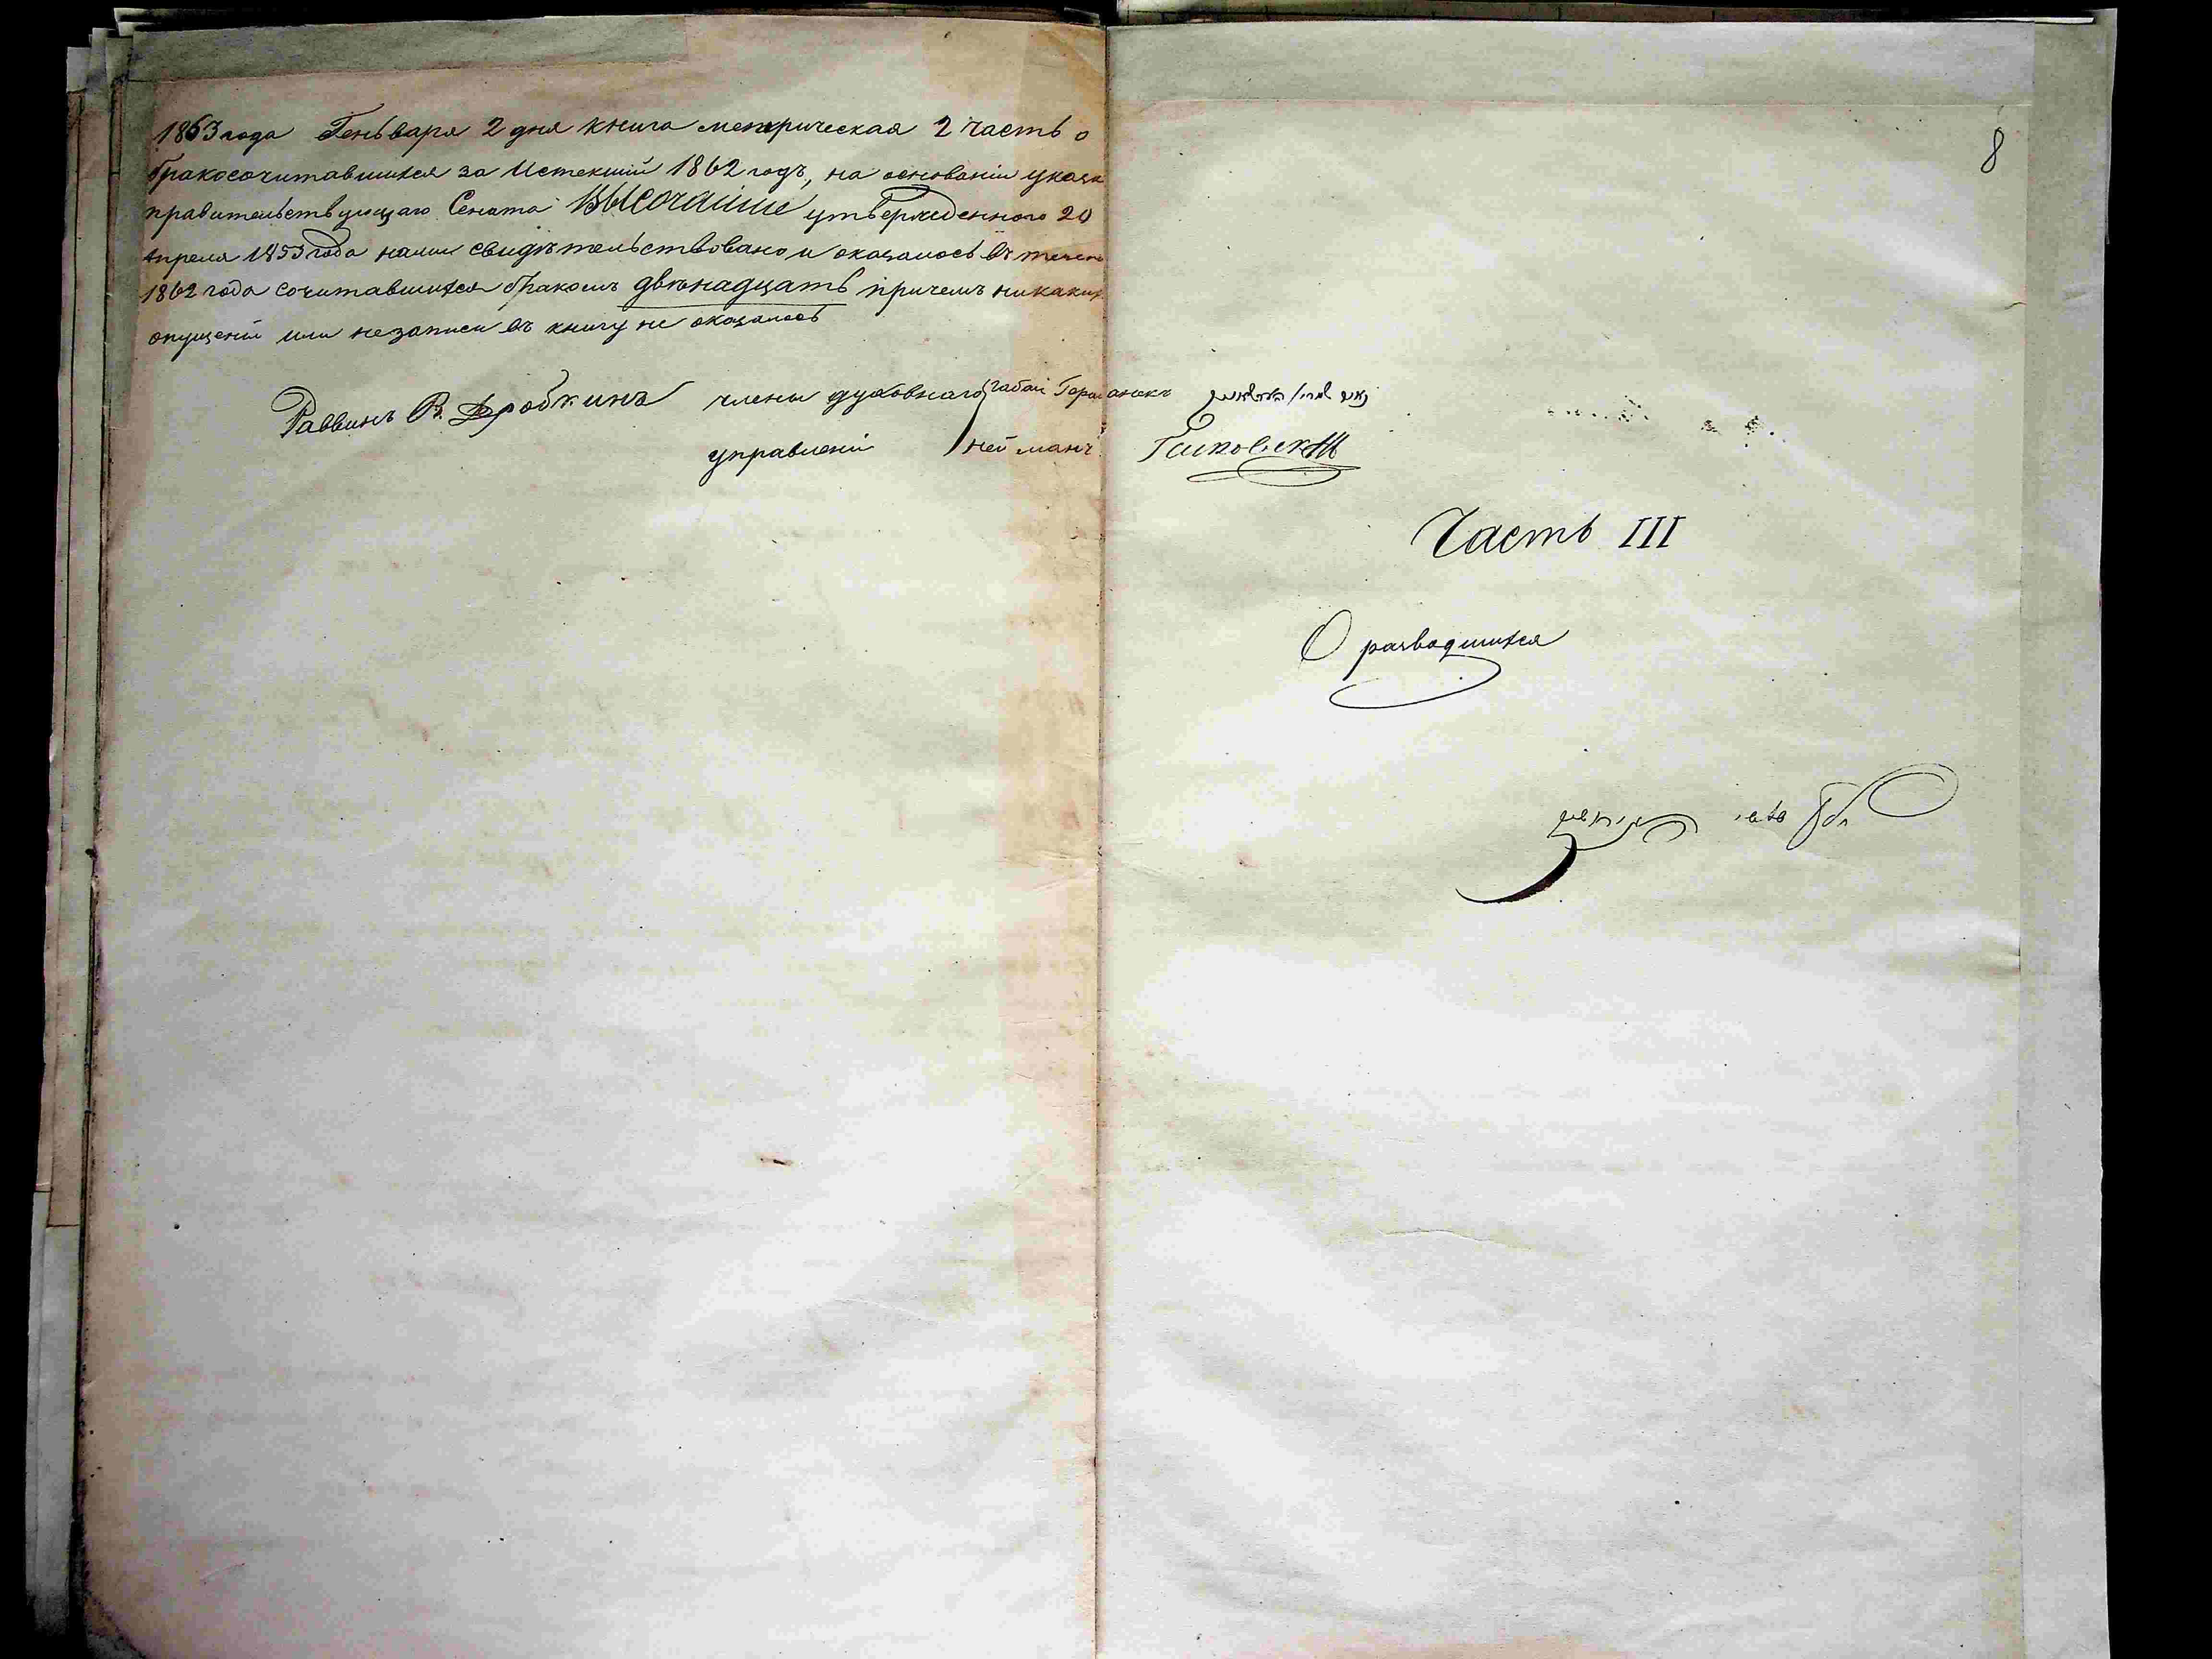 1863 года Геньваря 2 дня книга метрическая 2 часть о
бракосочитавшихся за Истекший 1862 годъ, на основаніи указа
правительствующаго Сената ВЫСОЧАйше утвержденного 20
Апреля 1853 года нами свидѣтельствовано и оказалось въ течен
1862 года сочитавшихся бракомъ двѣнадцать причемъ никаких
опущеній или незаписи въ книгу не оказалось
Раввинъ В. Дробкинъ члены духовнаго габаи
управленій нейманъ
8
Часть III
О разводшихся